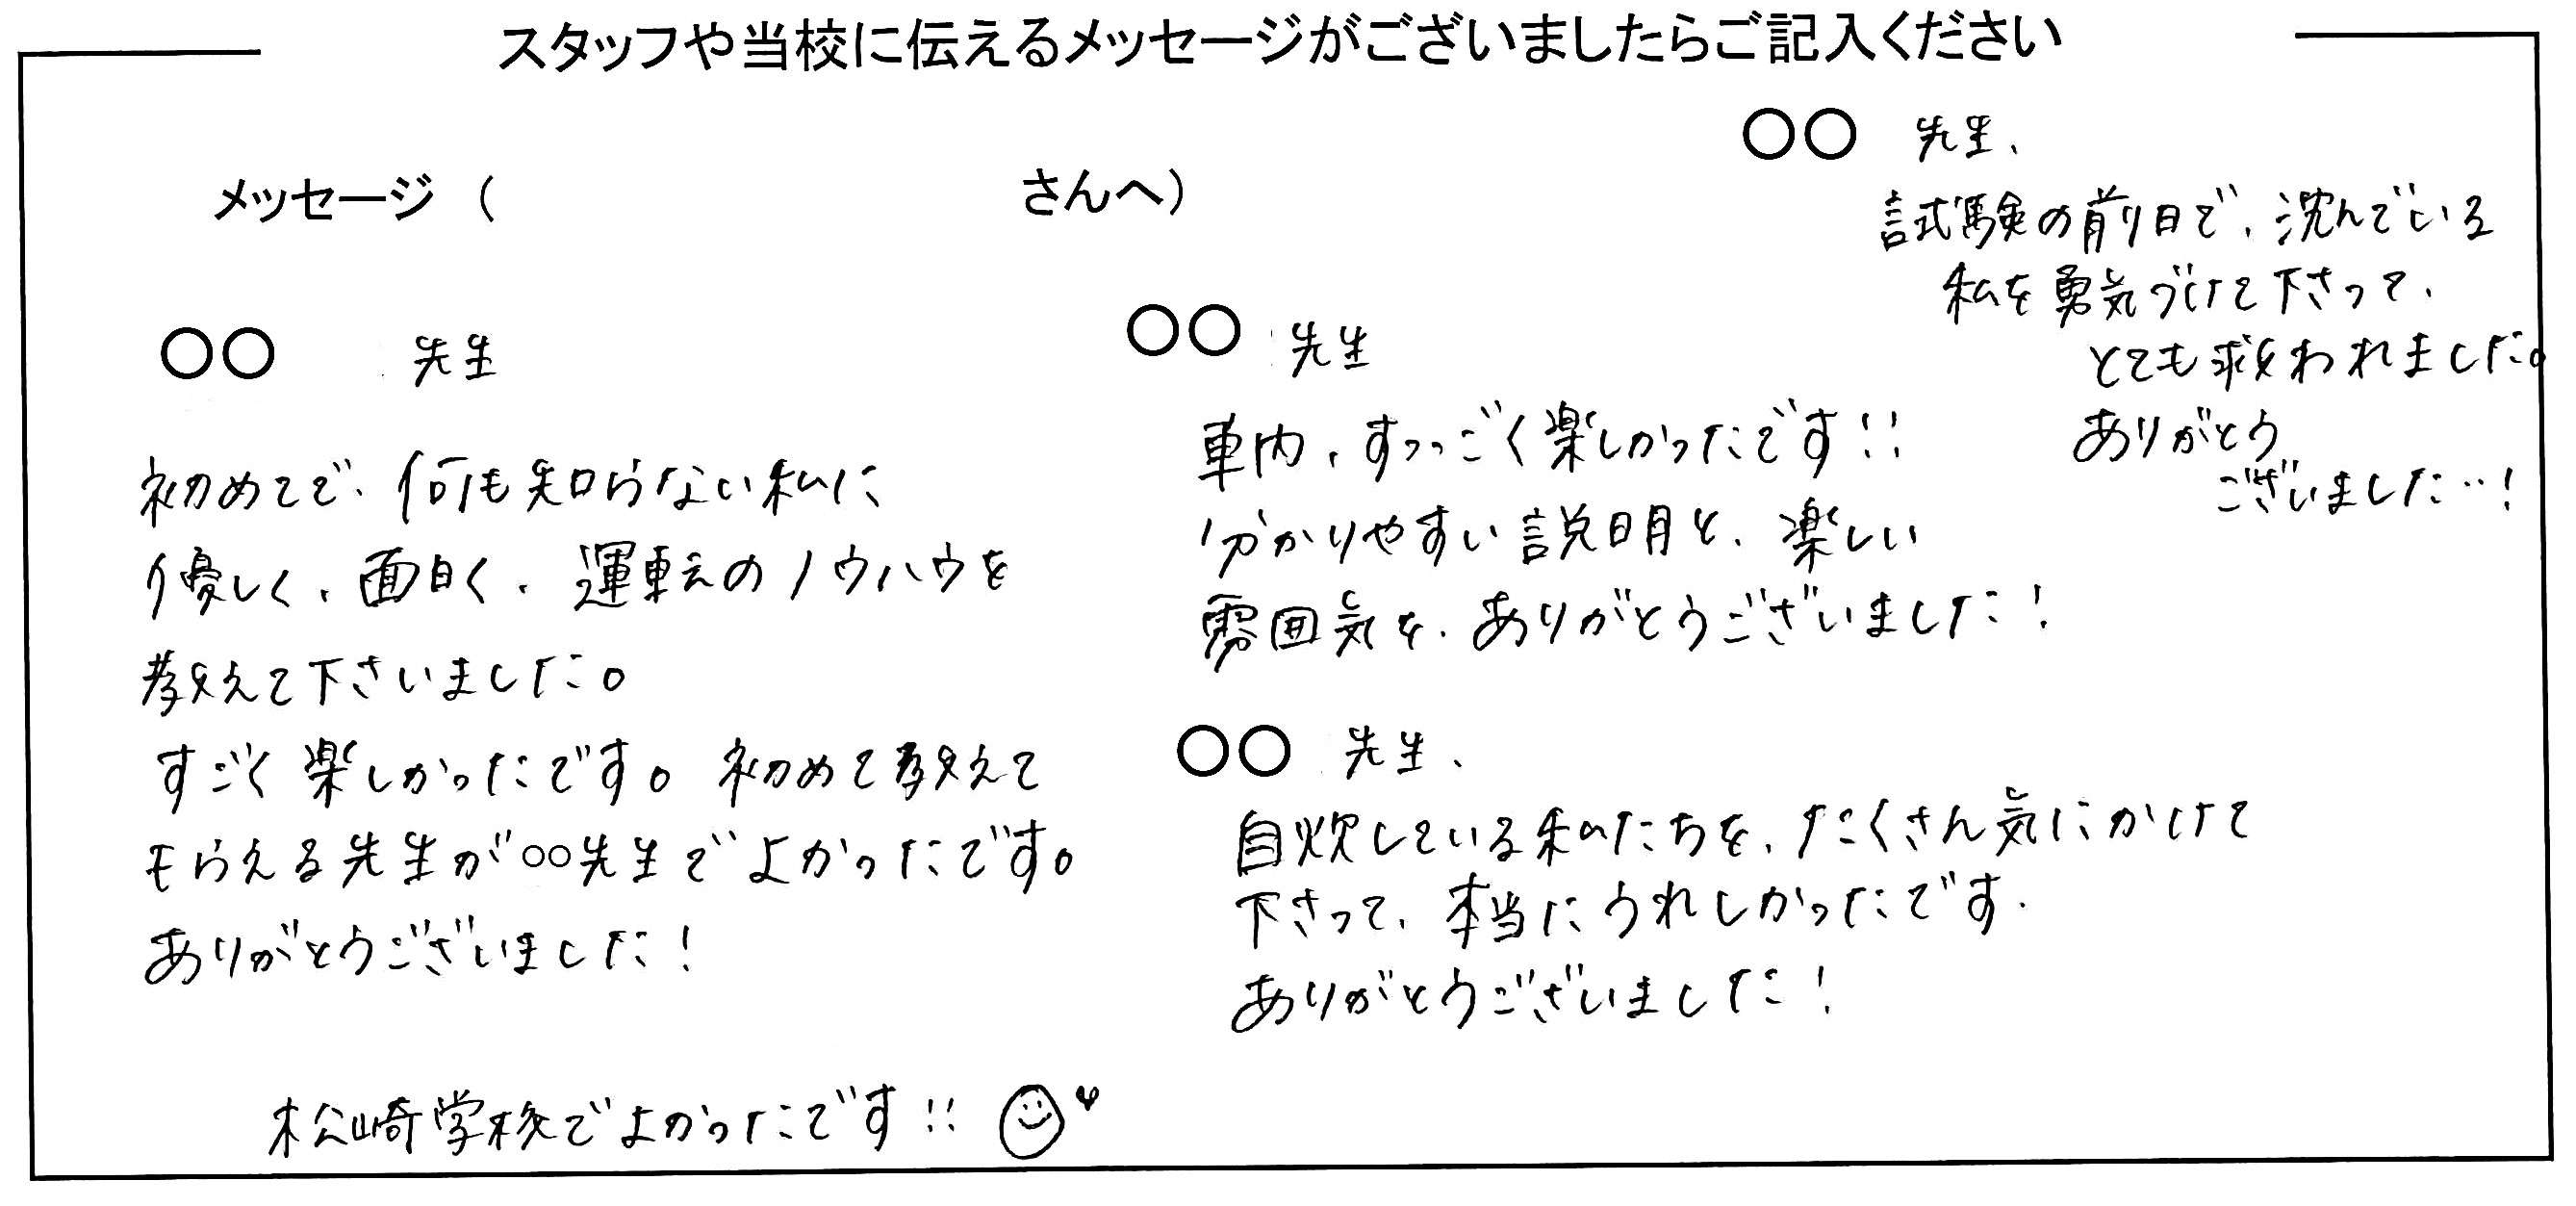 スタッフや当校に伝えるメッセージがございましたらご記入ください
メッセージ （　　　　　さんへ）
○○ 先生
初めてで、何も知らない私に
優しく、面白く、運転のノウハウを
教えて下さいました。
すごく楽しかったです。初めて教えて
もらえる先生が○○先生でよかったです。
ありがとうございました！
○○ 先生
車内、すっっごく楽しかったです！！
分かりやすい説明と、楽しい
雰囲気を、ありがとうございました！
○○ 先生、
自炊している私たちを、たくさん気にかけて
下さって、本当にうれしかったです。
ありがとうございました！
○○ 先生、
試験の前日で、沈んでいる
私を勇気づけて下さって、
とても救われました。
ありがとう
ございました…！
松崎学校でよかったです！！